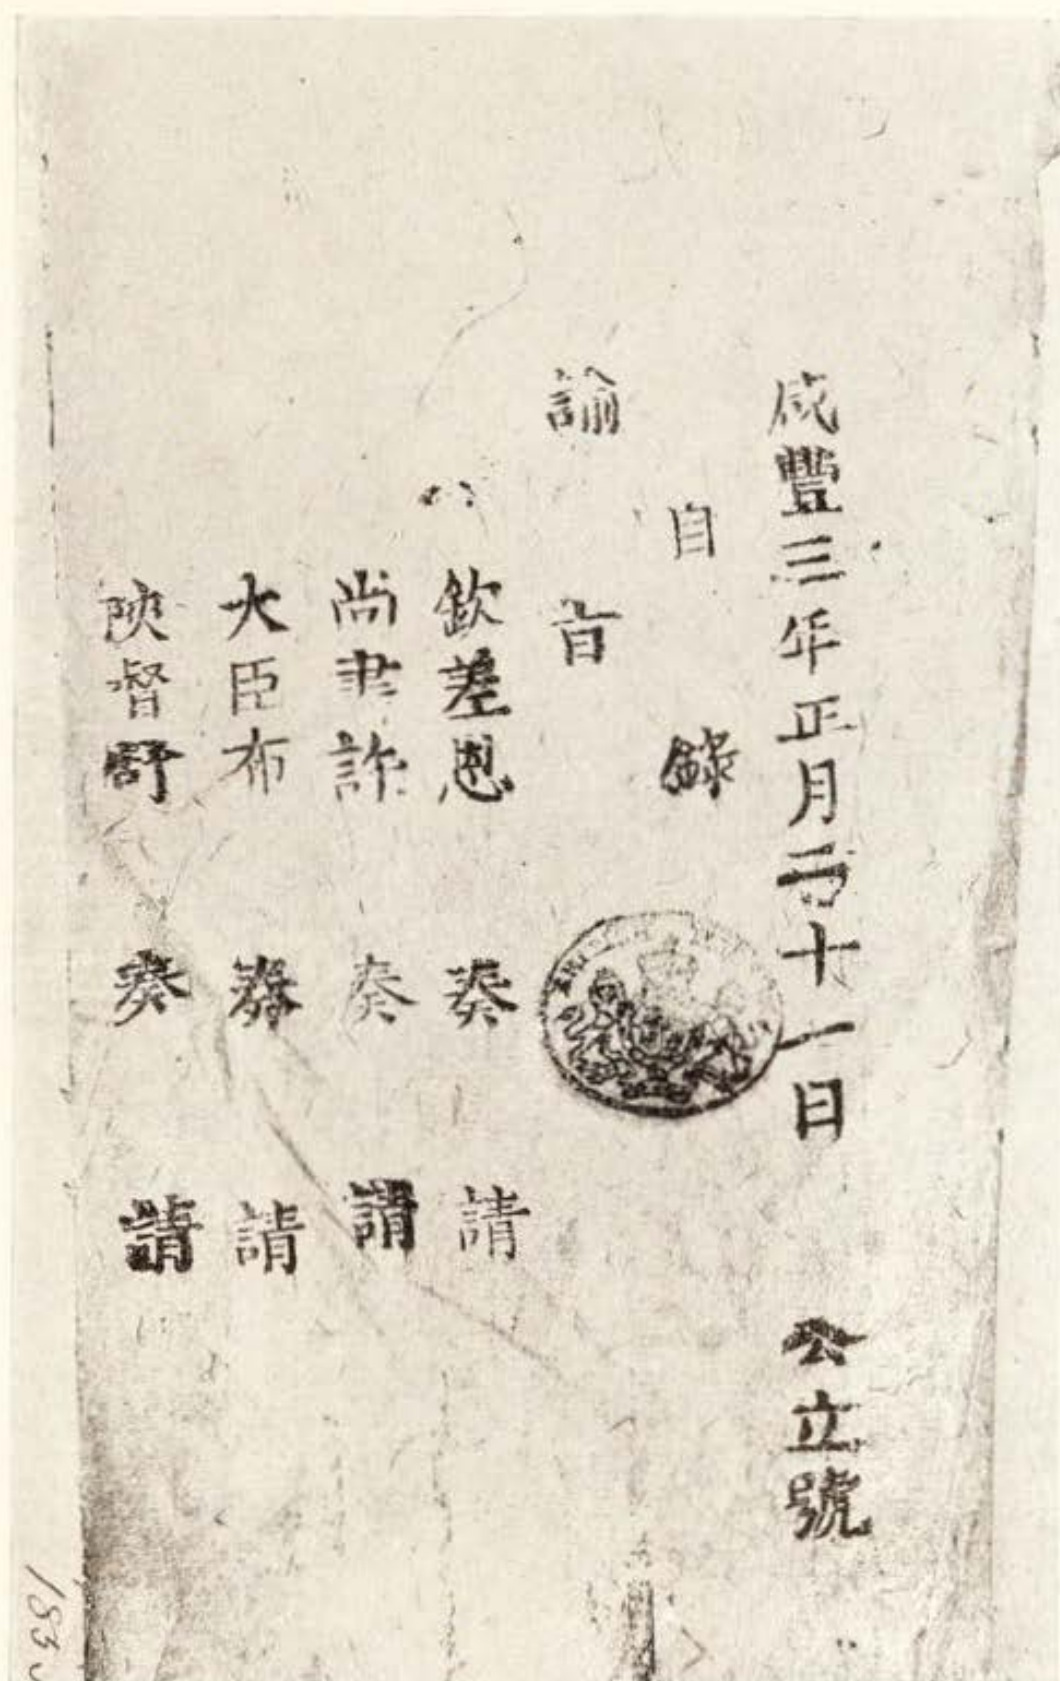 咸豐三年正月二十一日 公立號
自錄
諭旨
欽差恩 奏請
尚書許 奏請
大臣布 奏請
陝督舒 奏請
183